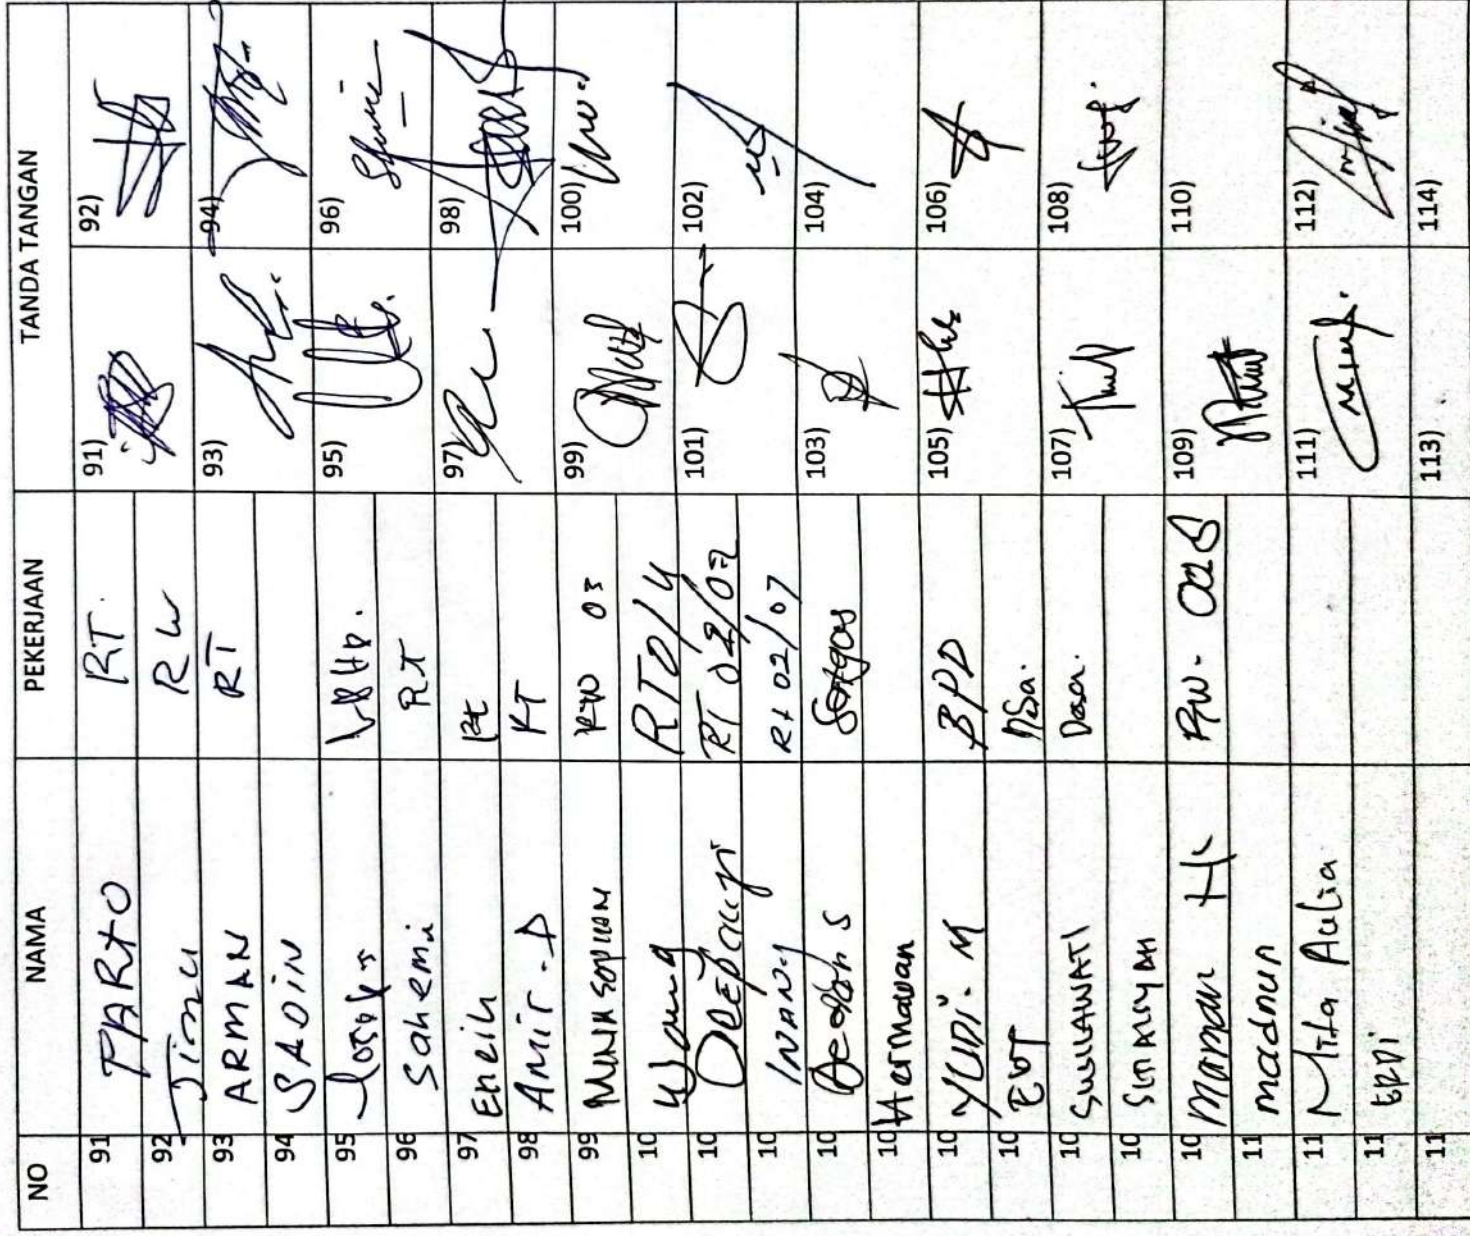 NO NAMA PEKERJAAN TANDA TANGAN
91 PARTO RT. 91) 92)
92 Jimu RW
93 ARMAN RT 93) 94)
94 SADIN
95 95) 96)
96 Sahemi RT
97 Encih Rt 97) 98)
98 Amit. D RT
99 MUNA SOPIAN RW 03 99) 100)
10 Wawg RTO/4
10 RT 02/02 101) 102)
10 INANY Rt 02/07
10 Dedeh S 103) 104)
10 Hermawan
10 YUDI. M BPD 105) 106)
10 EVI Desa.
10 SULLAWATI Desa. 107) 108)
10 SUMARYAH
10 Maman H RW. 109) 110)
11 madnun
11 Mita Aulia 111) 112)
11 EPDI
11 113) 114)